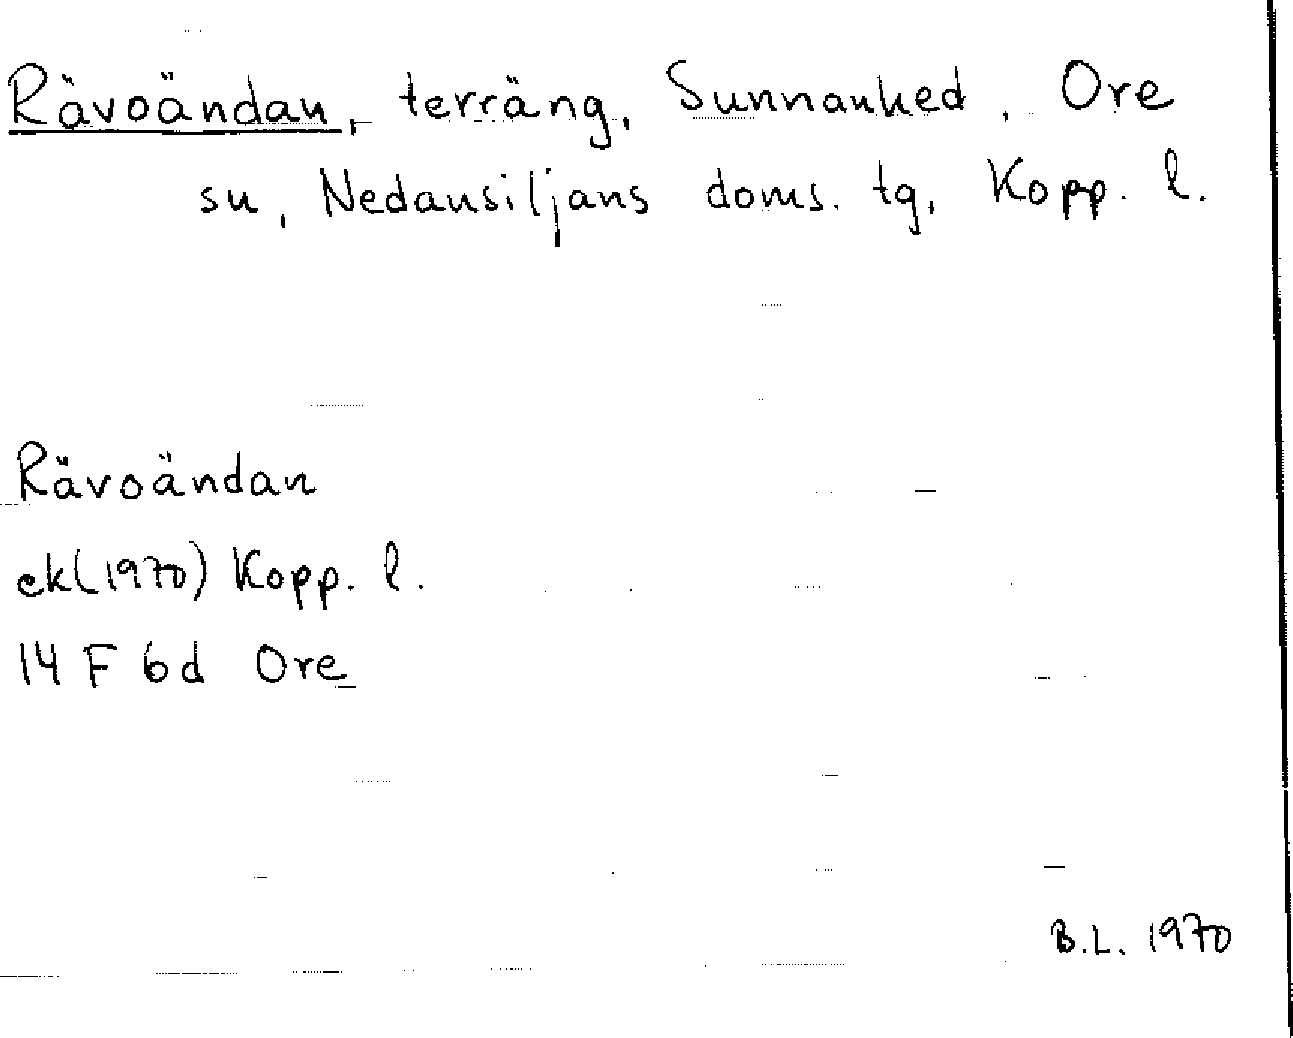 Rävoändan, terräng, Sunnanhed, Ore
sn, Nedansiljans doms. tg, Kopp. l.
Rävoändan
ek(1970) Kopp. l.
14 F 6d Ore
B.L. 1970